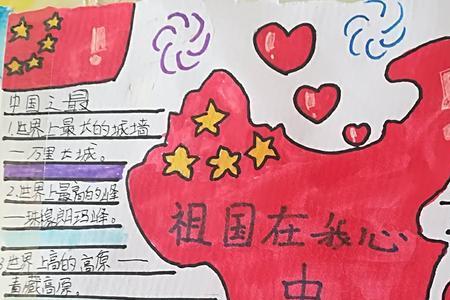 中国之最
1.世界上最长的城墙
—万里长城。
2.世界上最高的峰
—珠穆朗玛峰。
3.世界上高的高原——
青藏高原。
祖国在我心
中